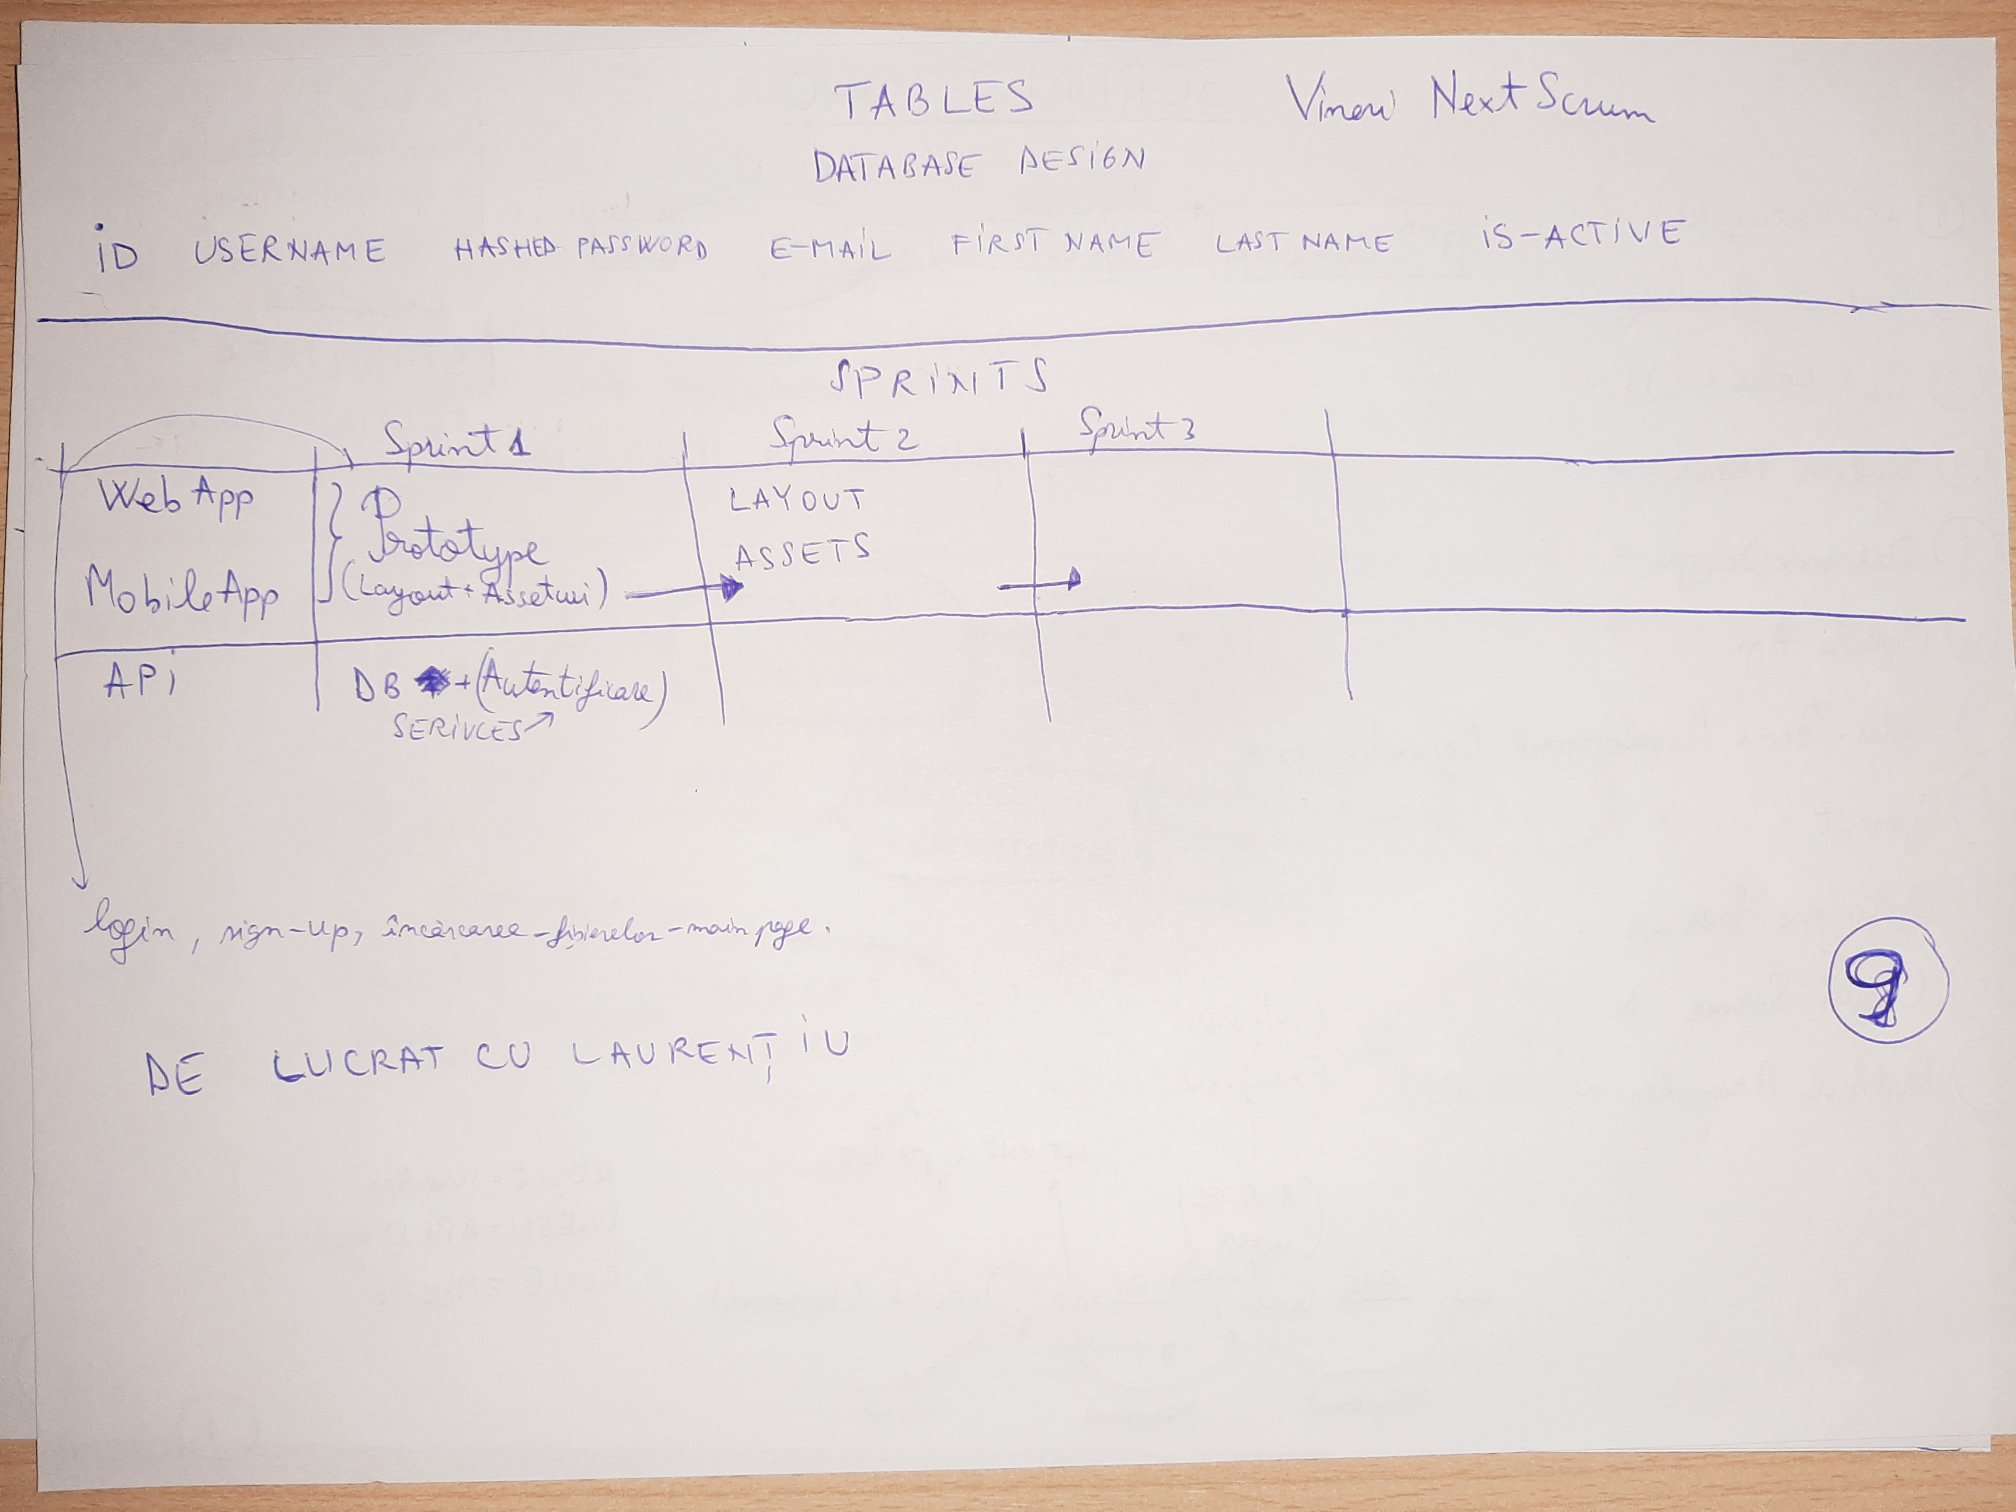 TABLES
Vineri Next Scrum
DATABASE DESIGN
ID USERNAME HASHED PASSWORD E-MAIL FIRST NAME LAST NAME iS-ACTIVE
SPRINTS
Sprint 1 Sprint 2 Sprint 3
Web App
Prototype
LAYOUT
ASSETS
Mobile App
(Layout + Asseturi)
APi
DB + (Autentificare)
SERIVCES
login, sign-up, încărcarea-fișierelor-main page.
9
DE LUCRAT CU LAURENȚIU